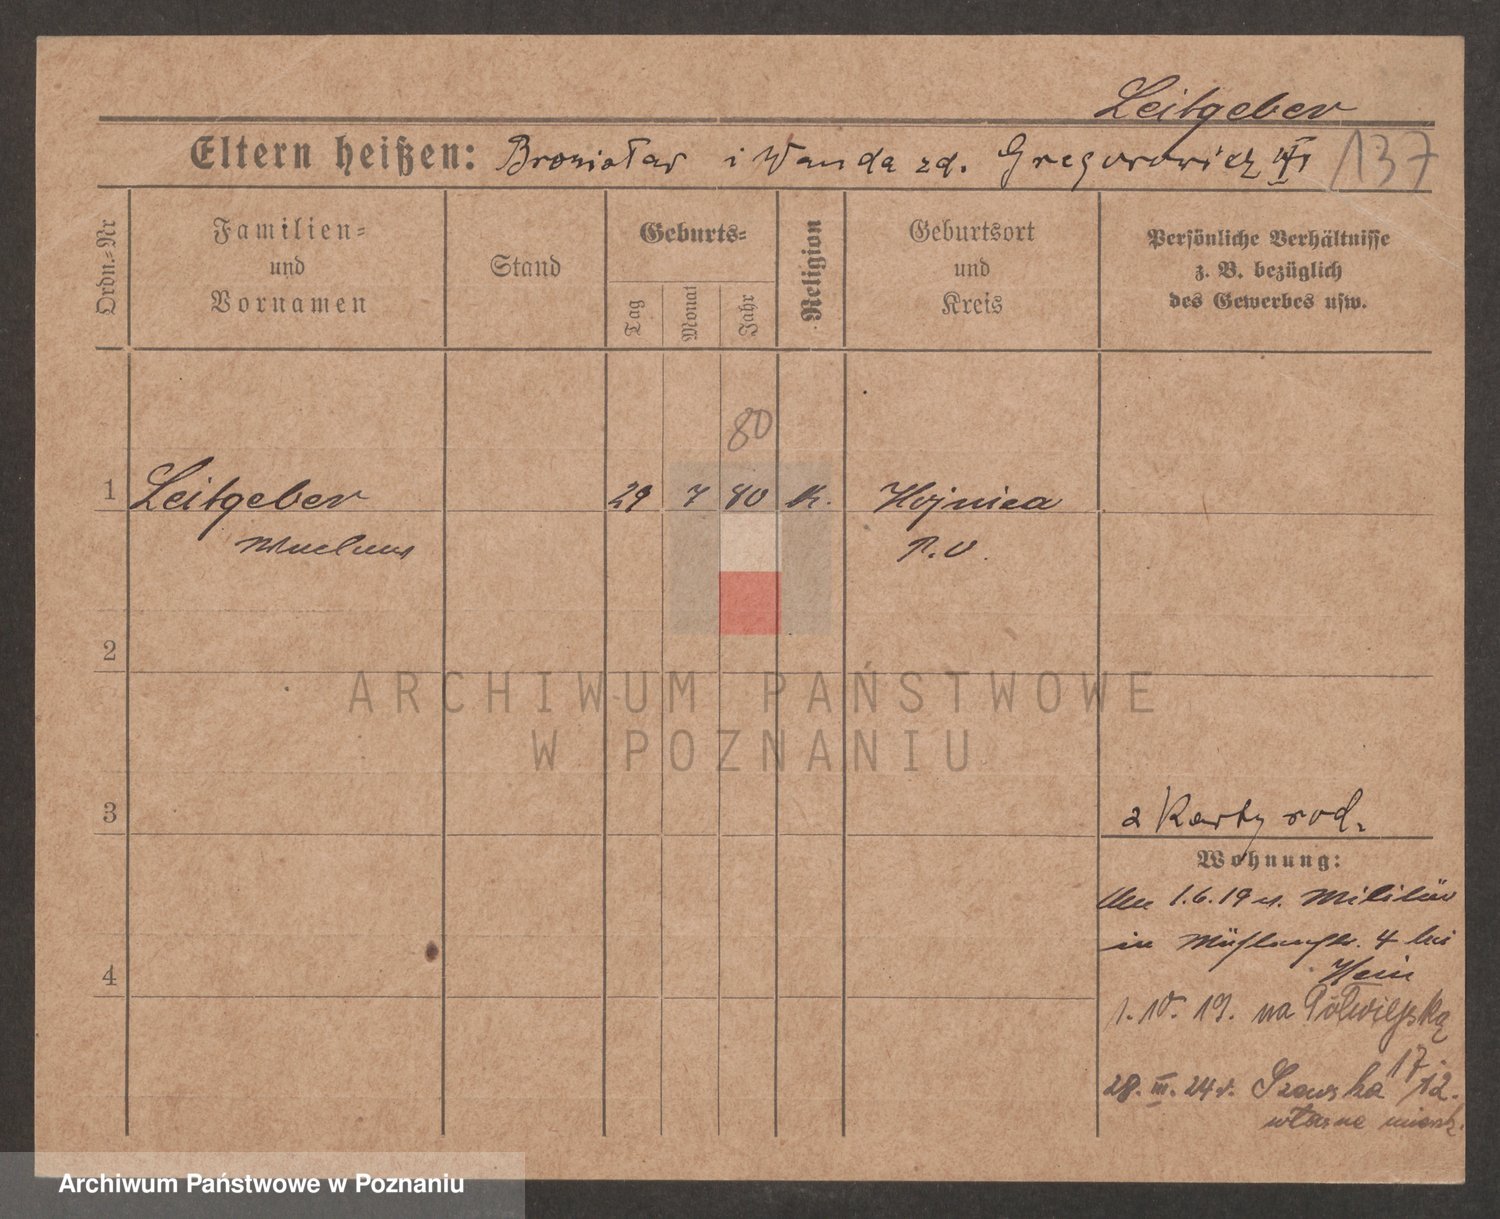 Leitgeber
Eltern heißen: Bronisław i Wanda zd. Gregorowicz VI
137
Ordn.-Nr
Familien-
und
Vornamen
Stand
Geburts-
Tag
Monat
Jahr
Religion
Geburtsort
und
Kreis
Persönliche Verhältnisse
z. B. bezüglich
des Gewerbes usw.
80
1 Leitgeber 29 7 80 K.
P. O.
2
ARCHIWUM PAŃSTWOWE
W POZNANIU
3
2 Karty rod.
Wohnung:
1.6.19 v. Militär
in Mühlenstr. 4 bei
Hein
1. 10. 19. na Półwiejską
17
28. III. 24 r. 12.
własne mieszk.
4
Archiwum Państwowe w Poznaniu